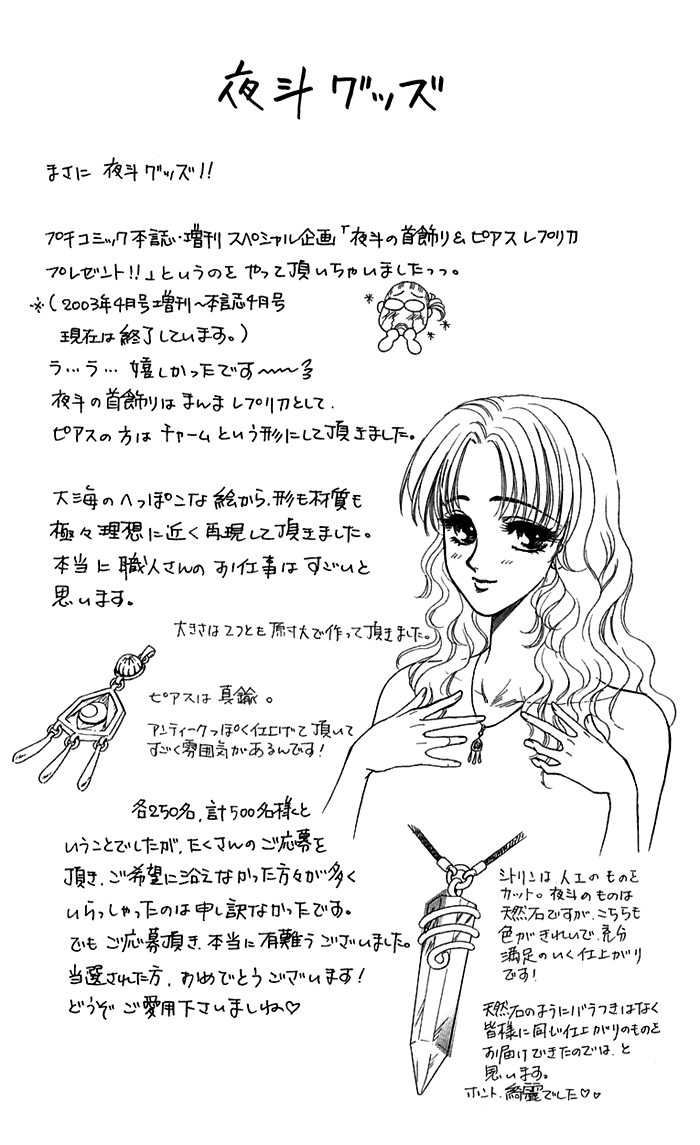 夜斗グッズ
まさに 夜斗グッズ!!
プチコミック本誌・増刊 スペシャル企画「夜斗の首飾り&ピアス レプリカ
プレゼント!!」というのを やって頂いちゃいましたっっ。
※(2003年4月号増刊〜本誌4月号
現在は 終了しています。)
う…う… 嬉しかったです〜〜
夜斗の首飾りは まんま レプリカとして、
ピアスの方は チャーム という形にして頂きました。
大海の へっぽこな 絵から、形も材質も
極々理想に近く再現して頂きました。
本当に 職人さんの お仕事は すごいと
思います。
大きさは2つとも原寸大で作って頂きました。
ピアスは 真鍮。
アンティークっぽく仕上げて頂いて
すごく雰囲気があるんです!
各250名、計500名様と
いうことでしたが、たくさんの ご応募を
頂き、ご希望に沿えなかった方々が多く
いらっしゃったのは 申し訳なかったです。
でも ご応募頂き、本当に 有難うございました。
当選された方、おめでとうございます!
どうぞ ご愛用下さいましね♡
シトリンは、人工のものを
カット。夜斗のものは
天然石ですが、こちらも
色がきれいで、充分
満足のいく仕上がり
です!
天然石のようにバラつきはなく
皆様に同じ仕上がりのものを
お届けできたのでは、と
思います。
ホント、綺麗でした♡♡